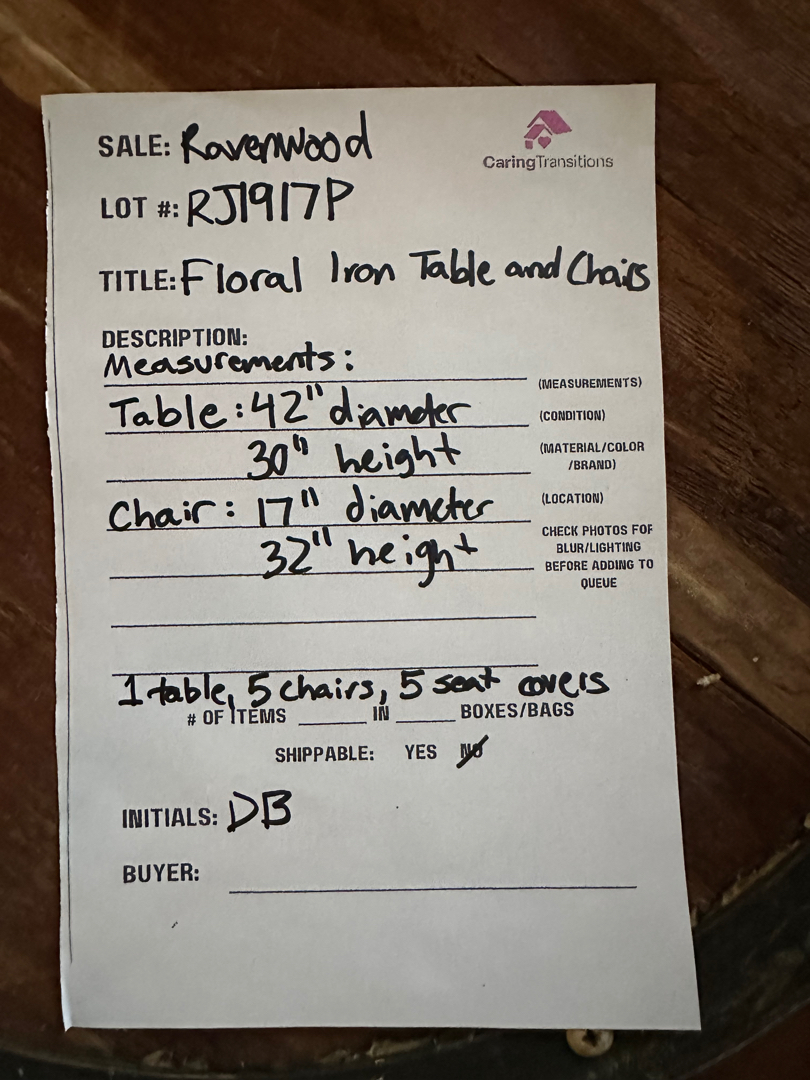 SALE: Ravenwood
CaringTransitions
LOT #: RJ1917P
TITLE: Floral Iron Table and Chairs
DESCRIPTION:
Measurements:
(MEASUREMENTS)
Table: 42" diameter
(CONDITION)
30" height
(MATERIAL/COLOR
/BRAND)
Chair: 17" diameter
(LOCATION)
32" height
CHECK PHOTOS FOF
BLUR/LIGHTING
BEFORE ADDING TO
QUEUE
1 table, 5 chairs, 5 seat covers
# OF ITEMS ______ IN ______ BOXES/BAGS
SHIPPABLE: YES NO
INITIALS: DB
BUYER: